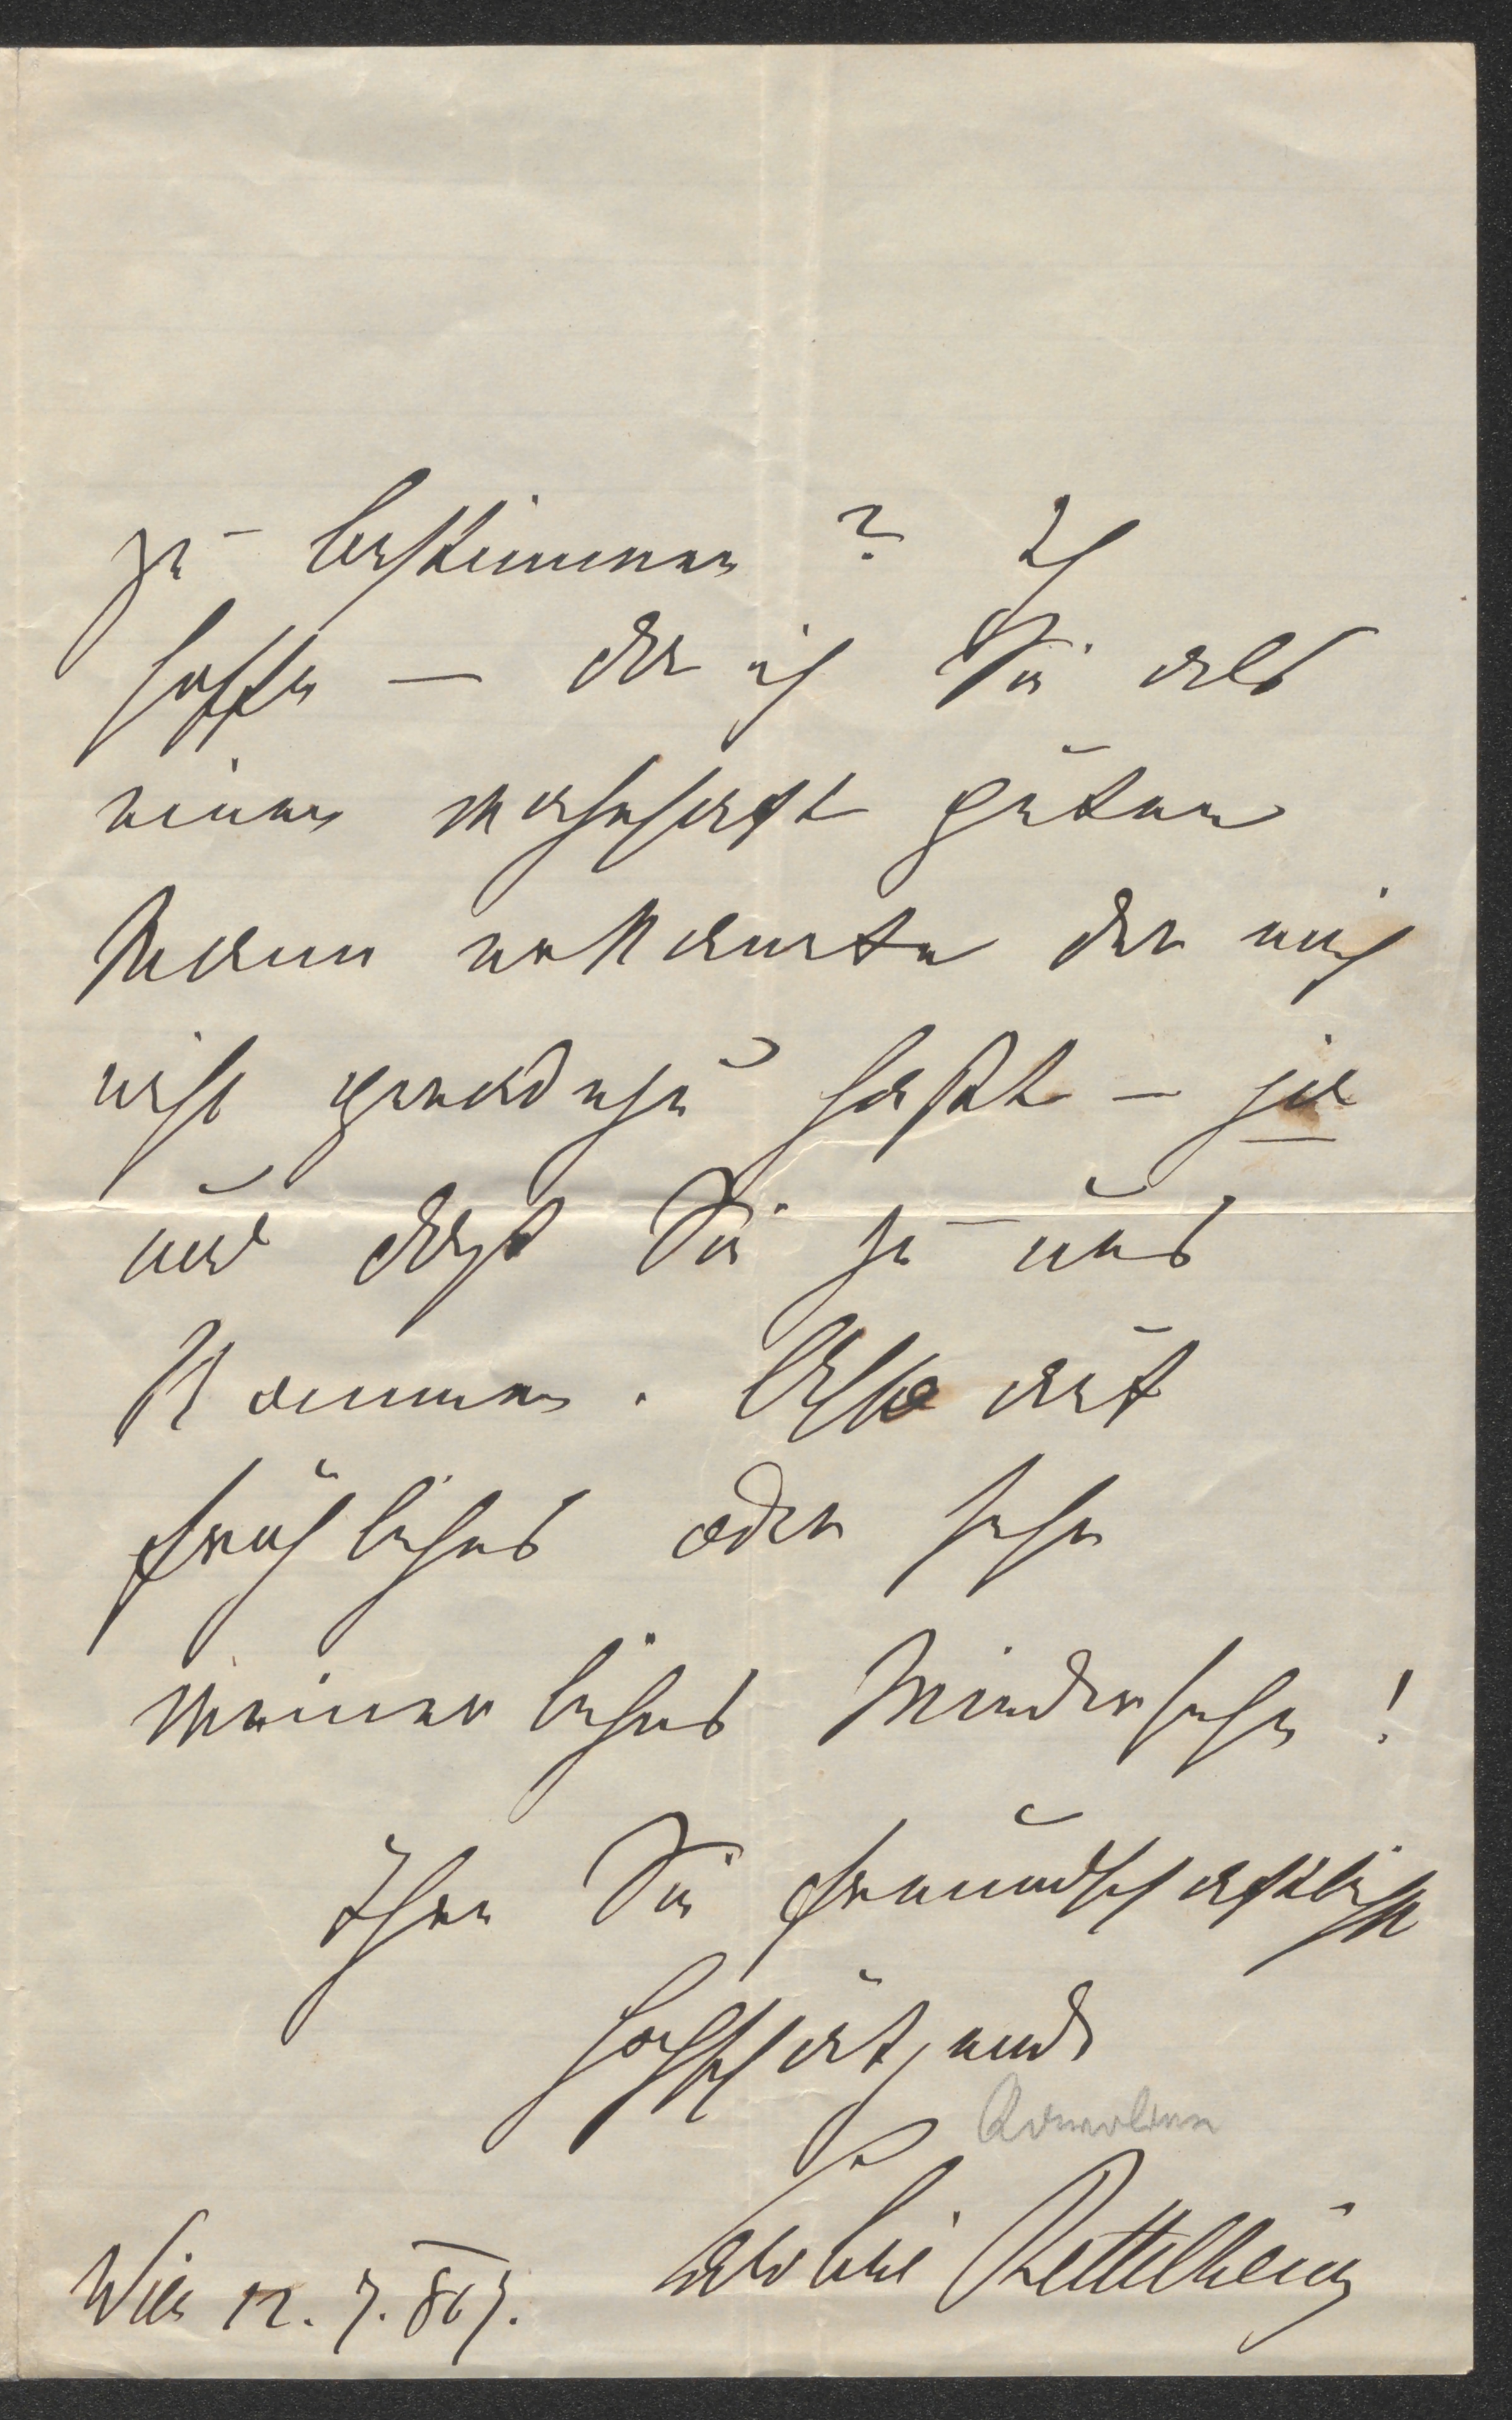 zu bestimmen? Ich
hoffe — da ich Sie als
einen wahrhaft guten
Mann erkannte der mich
nicht geradezu haßt — ja
und daß Sie zu uns
kommen. Also auf
fröhliches oder sehr
weinerliches Wiedersehen!
Ihre Sie freundschaftlichst
hochschätzende
Karoline
Caroline Bettelheim
Wien 12. 7. 867.